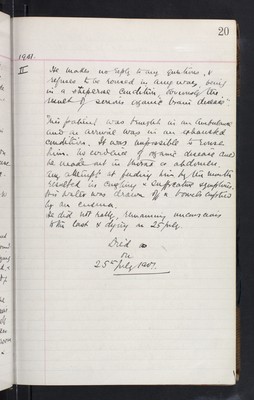 20
1901.
II He makes no reply to any questions, &
refuses to be roused in any way, being
in a stuporose condition, obviously the
result of serious organic brain disease"
This patient was brought in an ambulance
and on arrival was in an exhausted
condition. It was impossible to rouse
him. No evidence of organic disease could
be made out in thorax or abdomen.
Any attempt at feeding him by the mouth
resulted in coughing & suffocative symptoms,
his water was drawn off & bowels emptied
by an enema.
He did not rally, remaining unconscious
to the last & dying on 25 July.
Died
on
25th July. 1901.